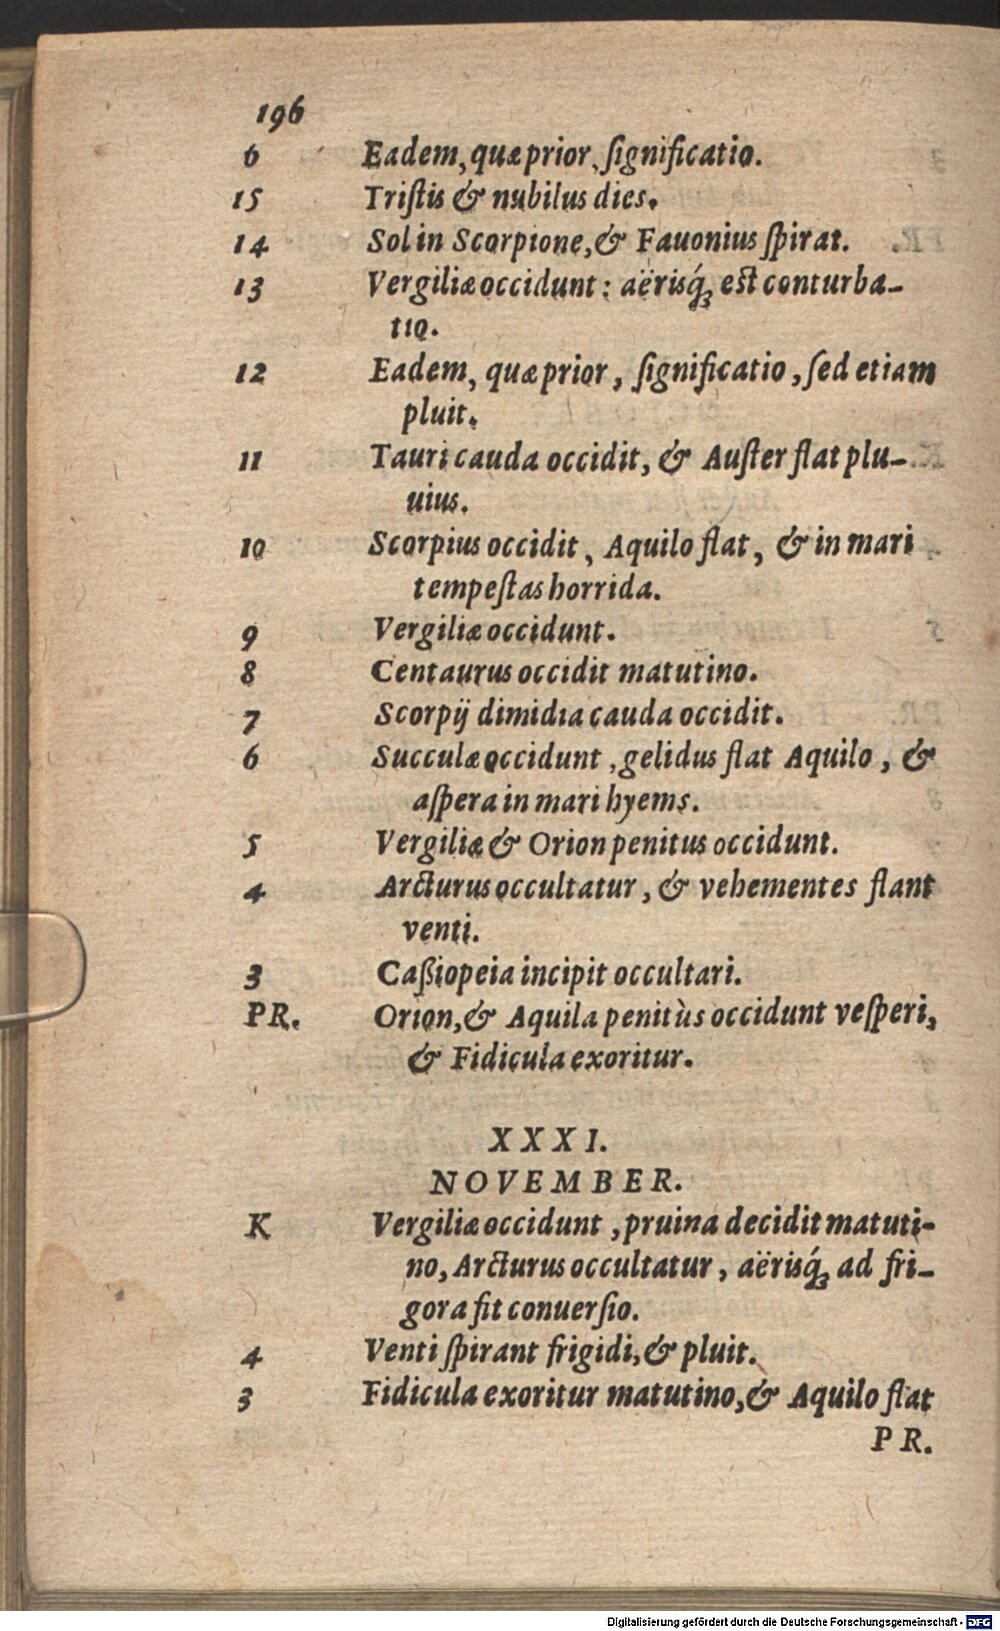 196
6 Eadem, quæ prior, ſignificatio.
15 Triſtis & nubilus dies.
14 Sol in Scorpione, & Fauonius ſpirat.
13 Vergiliæ occidunt: aërisq́ꝫ est conturba-
tio.
12 Eadem, quæ prior, ſignificatio, ſed etiam
pluit.
11 Tauri cauda occidit, & Auſter flat plu-
uius.
10 Scorpius occidit, Aquilo flat, & in mari
tempeſtas horrida.
9 Vergiliæ occidunt.
8 Centaurus occidit matutino.
7 Scorpij dimidia cauda occidit.
6 Succulæ occidunt, gelidus flat Aquilo, &
aſpera in mari hyems.
5 Vergiliæ & Orion penitus occidunt.
4 Arcturus occultatur, & vehementes flant
venti.
3 Caßiopeia incipit occultari.
PR. Orion, & Aquila penitùs occidunt veſperi,
& Fidicula exoritur.
XXXI.
NOVEMBER.
K Vergiliæ occidunt, pruina decidit matuti-
no, Arcturus occultatur, aërisq́ꝫ ad fri-
gora fit conuerſio.
4 Venti ſpirant frigidi, & pluit.
3 Fidicula exoritur matutino, & Aquilo flat
PR.
Digitalisierung gefördert durch die Deutsche Forschungsgemeinschaft - DFG